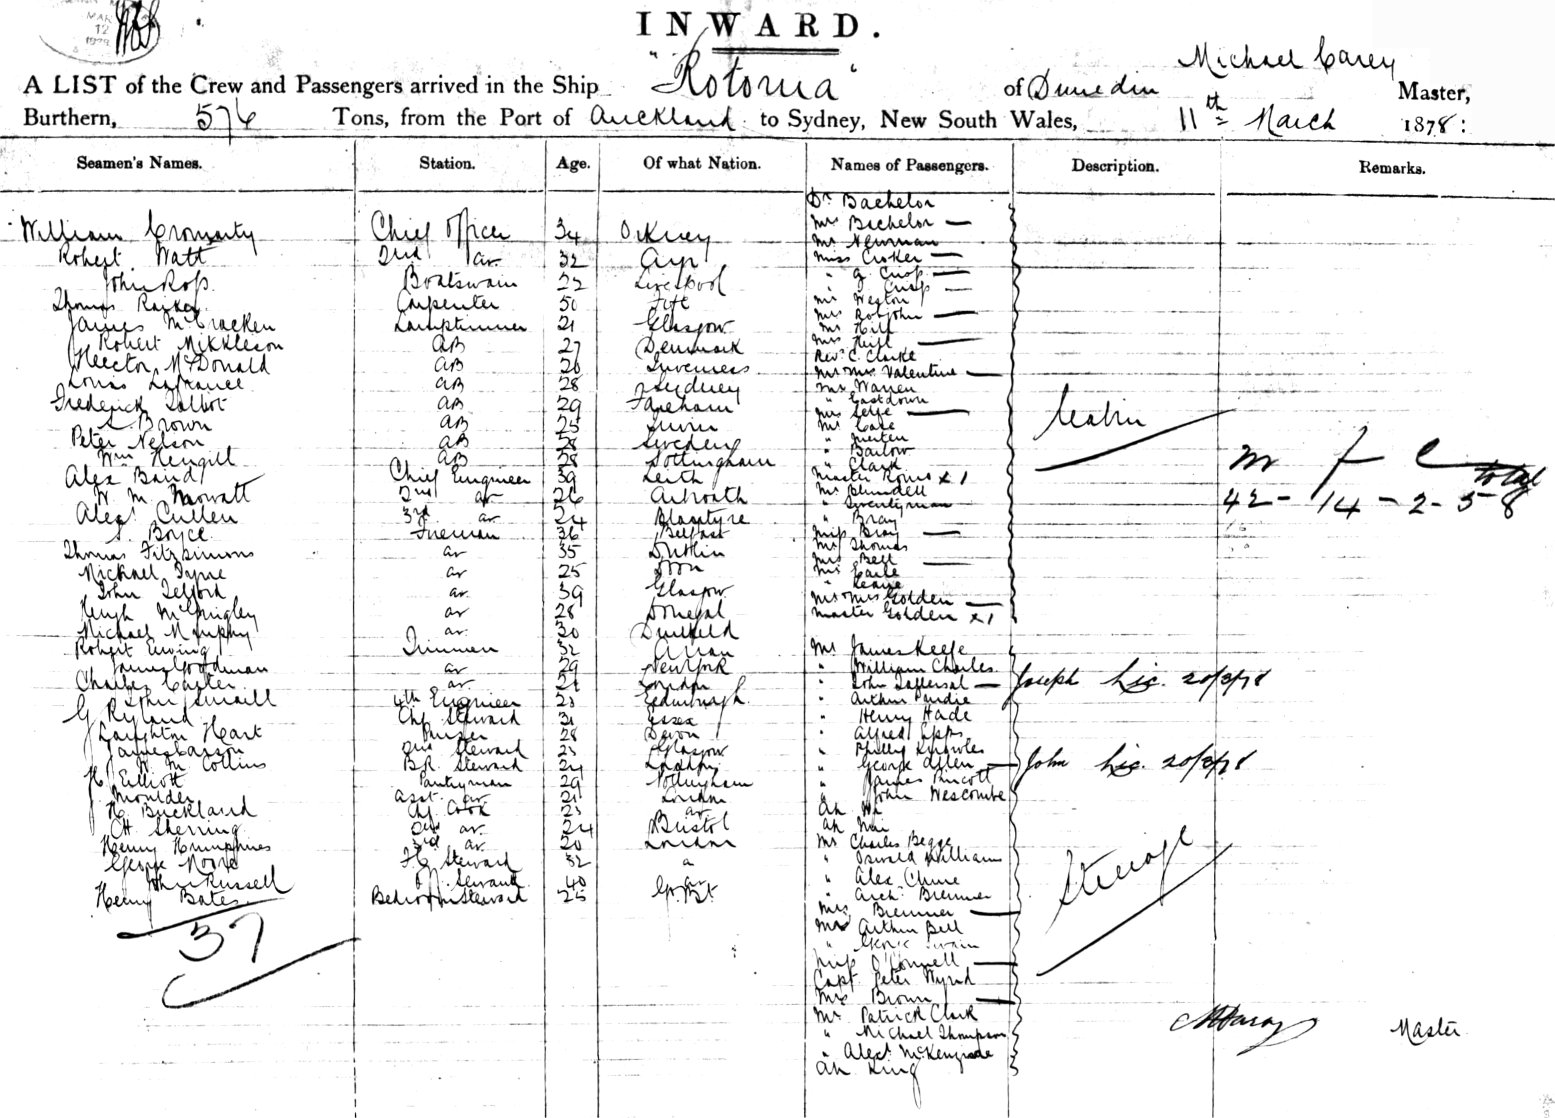 MAR
12
INWARD.
A LIST of the Crew and Passengers arrived in the Ship "Rotorua" of Dunedin Michael Carey Master,
Burthern, 576 Tons, from the Port of Auckland to Sydney, New South Wales, 11th March 1878:
Seamen's Names. Station. Age. Of what Nation. Names of Passengers. Description. Remarks.
William Cromarty Chief Officer 34 Orkney
Robert Watt 2nd do 32 Ayr
John Ross Boatswain 22 Liverpool
Thomas Carpenter 50 Fife
James McCracken Lamptrimmer 21 Glasgow
Robert Mikkleson AB 27 Denmark
Hector McDonald AB 26 Inverness
Louis Lafrance AB 28 Sydney
Frederick Talbot AB 29 Fareham
S Brown AB 25
Peter Nelson AB 28 Sweden
Wm AB 28 Nottingham
Alex Baird Chief Engineer 39 Leith
W. M. Mowatt 2nd do 26 Arbroath
Alexr Cullen 3rd do 24 Blantyre
S. Boyce Fireman 36 Belfast
Thomas Fitzsimmons do 35 Dublin
Michael Tyne do 25
John Telford do 39 Glasgow
Hugh McGinigley do 28 Donegal
Michael Murphy do 30
Robert Ewing Trimmer 32 Arran
James Goodman do 29 New York
Charles Carter do 21 London
John 4th Engineer 23 Edinburgh
G Ryland Chf Steward 31 Essex
Laughton Hart Purser 28 Devon
James Carson 2nd Steward 23 Glasgow
W. M. Collins B.R. Steward 24 London
H. Elliott Pantryman 29 Nottingham
Moulder Asst do 21 London
H Buckland Chf Cook 23 do
CH Sherring 2nd do 24 Bristol
Henry Humphries 3rd do 20 London
George Moore F.C. Steward 32
John Russell Servant 40 do
Henry Bates Bedroom Steward 25 Gt. Bt.
37
Dr Bachelor
Mrs Bachelor —
Mr Newman
Miss Croker —
" G Crisp —
" J Crisp —
Mr Weston
Mrs —
Mr Hill
Mrs Hill —
Revd C. Clarke
Mr Mrs Valentine —
Mr Warren
" Eastdown
Mrs Selfe —
Mr Case
"
" Barlow
" Clark
Master x 1
Mr Blundell
" Twentyman
" Bray
Miss Bray —
Mr Thomas
Mrs Bell —
Mr Earle
" Keane
Mr Mrs Golden —
Master Golden x 1
Cabin
m f c total
42 - 14 - 2 - 58
Mr James Keefe
" William Charles
" John — Joseph Lic. 20/3/78
" Arthur Purdie
" Henry Hade
" Alfred Epps
" Philly Knowles
" George Allen — John Lic. 20/3/78
" James Pincott
" John Wescombe
Ah
Ah
Mr Charles Begge
" Oswald William
" Alex Clune
" Arch Bremner
Mrs Bremner —
Mr Arthur Bell
" George Swain
Miss O'Connell —
Capt. Peter
Mrs Brown —
Mr Patrick Clark
" Michael Thompson
" Alexr
Ah King
Steerage
M Carey Master